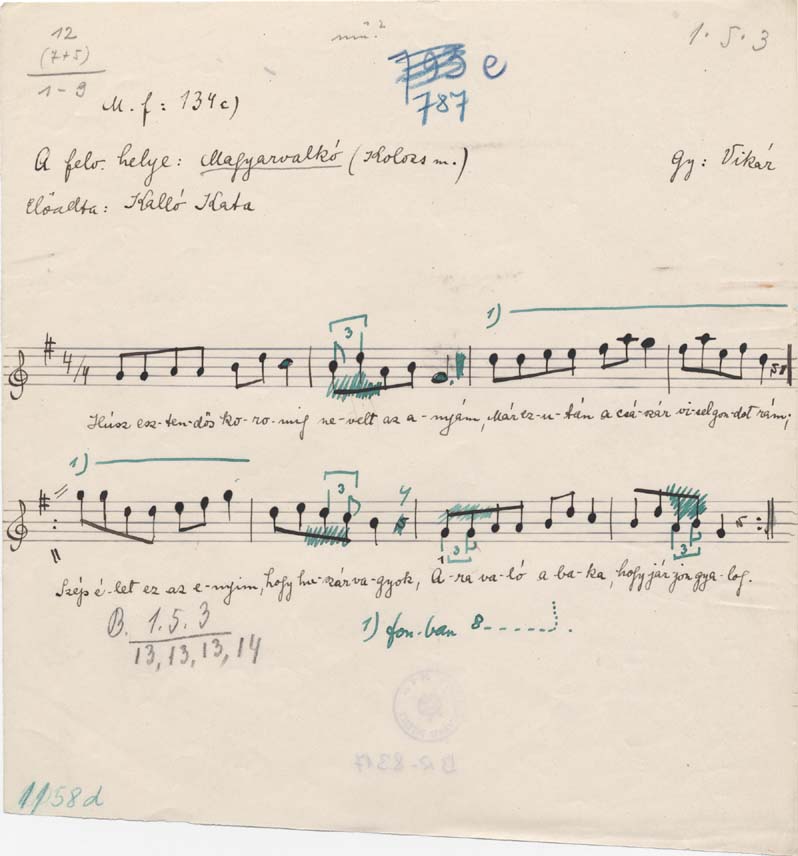 12
(7+5)
1-9
mü.?
1. 5. 3
e
787
M. f: 134c)
A felv. helye: Magyarvalkó (Kolozs m.)
Gy: Vikár
Előadta: Kalló Kata
1)
3
4/4
Húsz esz-ten-dős ko-ro-mig ne-velt az a-nyám, Már ez-u-tán a csá-szár vi-sel gon-dot rám;
1)
3
4
1 3
3
Szép é-let ez az e-nyim, hogy hu-szár va-gyok, A-ra va-ló a ba-ka, hogy jár-jon gya-log.
B. 1. 5. 3
13, 13, 13, 14
1) fon-ban 8
BR-8317
1158d